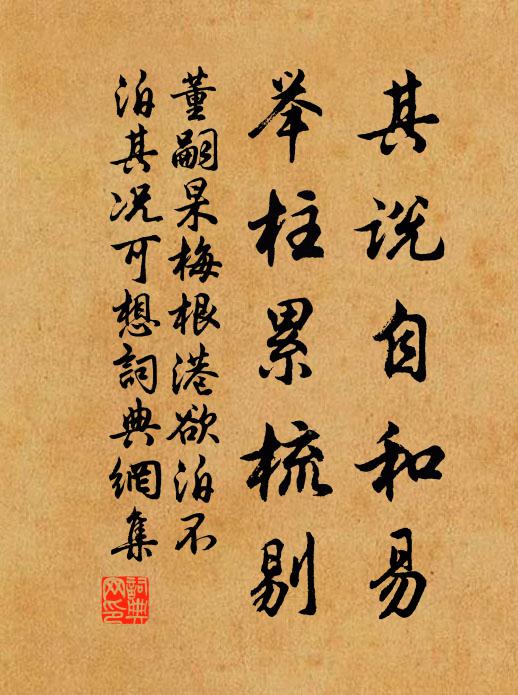 其说自和易
举柱累梳剔
董嗣杲梅根港欲泊不
泊其况可想詞典網集
詞典
网印